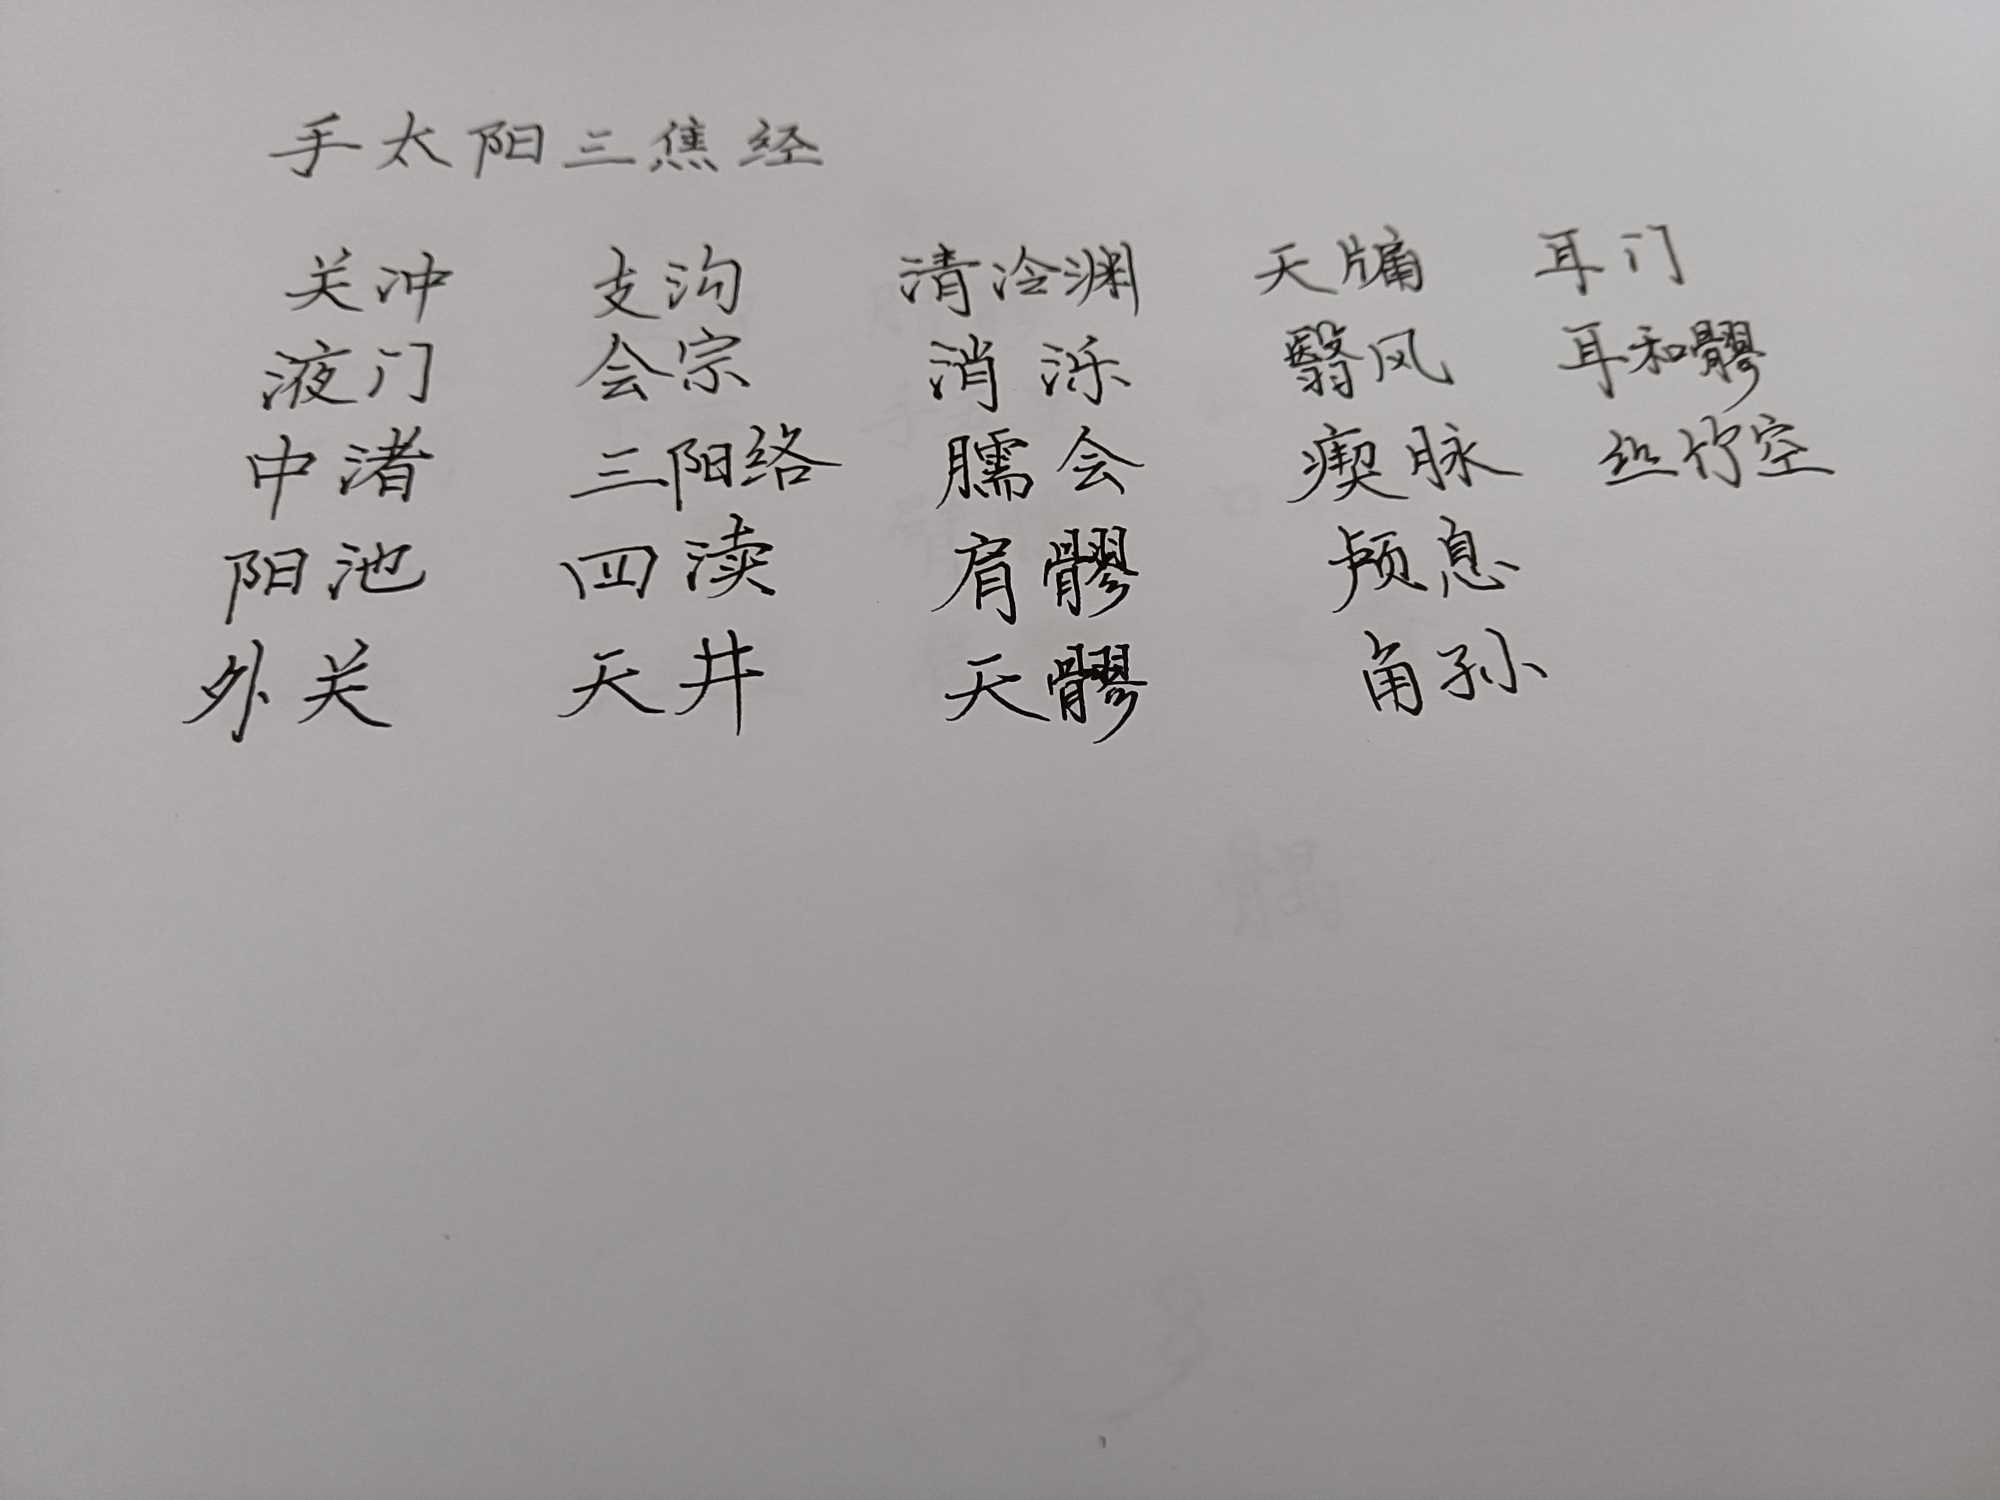 手太阳三焦经
关冲 支沟 清泠渊 天牖 耳门
液门 会宗 消泺 翳风 耳和髎
中渚 三阳络 臑会 瘈脉 丝竹空
阳池 四渎 肩髎 颅息
外关 天井 天髎 角孙